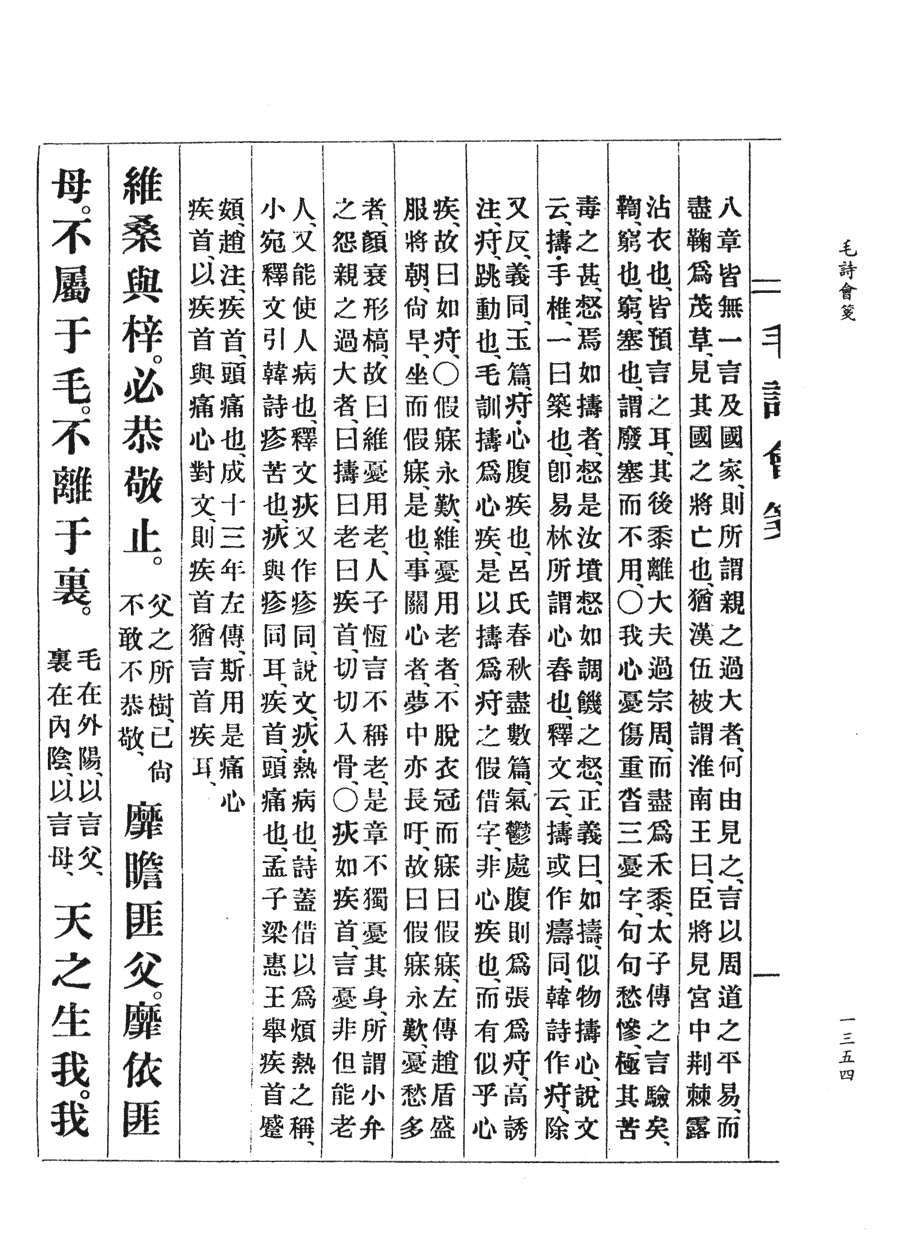 毛詩會箋
一三五四
毛詩會箋
八章皆無一言及國家、則所謂親之過大者、何由見之、言以周道之平易、而
盡鞠爲茂草、見其國之將亡也、猶漢伍被謂淮南王曰、臣將見宮中荆棘露
沾衣也、皆預言之耳、其後黍離大夫過宗周、而盡爲禾黍、太子傳之言驗矣、
鞫、窮也、窮、塞也、謂廢塞而不用、〇我心憂傷重沓三憂字、句句愁慘、極其苦
毒之甚、惄焉如擣者、惄是汝墳惄如調饑之惄、正義曰、如擣、似物擣心、說文
云、擣・手椎、一曰築也、卽易林所謂心舂也、釋文云、擣或作癙同、韓詩作疛、除
又反、義同、玉篇、疛・心腹疾也、呂氏春秋盡數篇、氣鬱處腹則爲張爲疛、高誘
注、疛、跳動也、毛訓擣爲心疾、是以擣爲疛之假借字、非心疾也、而有似乎心
疾、故曰如疛、〇假寐永歎、維憂用老者、不脫衣冠而寐曰假寐、左傳趙盾盛
服將朝、尙早、坐而假寐、是也、事關心者、夢中亦長吁、故曰假寐永歎、憂愁多
者、顏衰形槁、故曰維憂用老、人子恆言不稱老、是章不獨憂其身、所謂小弁
之怨親之過大者、曰擣曰老曰疾首、切切入骨、〇疢如疾首、言憂非但能老
人、又能使人病也、釋文疢又作疹同、說文、疢・熱病也、詩蓋借以爲煩熱之稱、
小宛釋文引韓詩疹苦也、疢與疹同耳、疾首、頭痛也、孟子梁惠王舉疾首蹙
頞、趙注、疾首、頭痛也、成十三年左傳、斯用是痛心
疾首、以疾首與痛心對文、則疾首猶言首疾耳、
維桑與梓。必恭敬止。父之所樹、已尙
不敢不恭敬、靡瞻匪父。靡依匪
母。不屬于毛。不離于裏。毛在外陽、以言父、
裏在內陰、以言母、天之生我。我